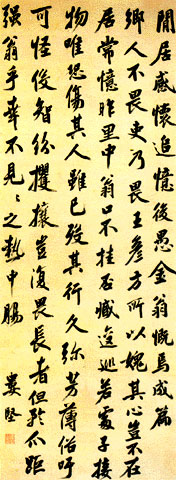 閒居感懷追憶後愚金翁慨焉成篇
鄉人不畏吏乃畏王彥方所以媿其心豈不在
居常憶昨里中翁口不挂否臧逡巡若處子接
物唯恐傷其人雖已歿其行久弥芳薄俗吁
可怪後智紛攫攘豈復畏長者但矜爪距
强翁乎幸不見之熱中腸
婁堅